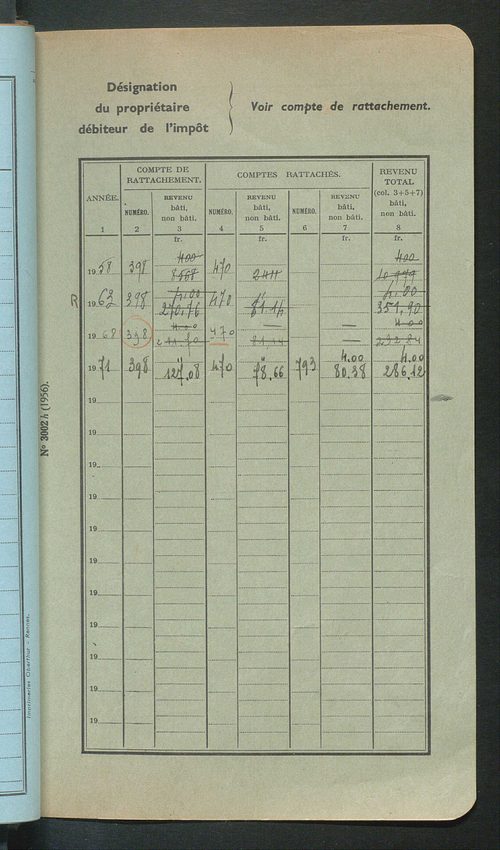 Désignation
du propriétaire
débiteur de l'impôt
Voir compte de rattachement.
ANNÉE.
COMPTE DE RATTACHEMENT.
COMPTES RATTACHÉS.
REVENU TOTAL (col. 3+5+7) bâti, non bâti.
NUMÉRO.
REVENU bâti, non bâti.
NUMÉRO.
REVENU bâti, non bâti.
NUMÉRO.
REVENU bâti, non bâti.
1 2 3 4 5 6 7 8
fr. fr. fr. fr.
400 400
1958 398 8568 470 2411 10979
4,00 4,00
R 1963 398 270,76 470 81,14 351,90
1968 398 470 81,14
4.00 4.00
1971 398 127,08 470 78,66 793 80.38 286.12
19
19
19
19
19
19
19
19
19
19
19
N° 3002 h (1956).
Imprimeries Oberthur - Rennes.